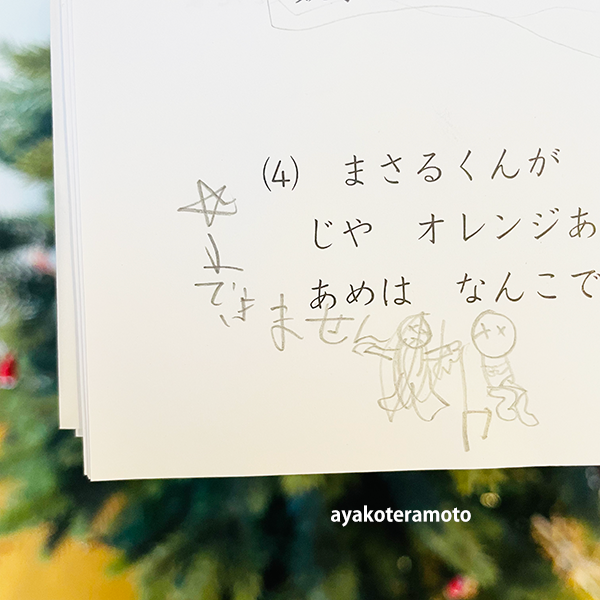 (4) まさるくんが
じや オレンジあ
あめは なんこで
上
できません
ayakoteramoto